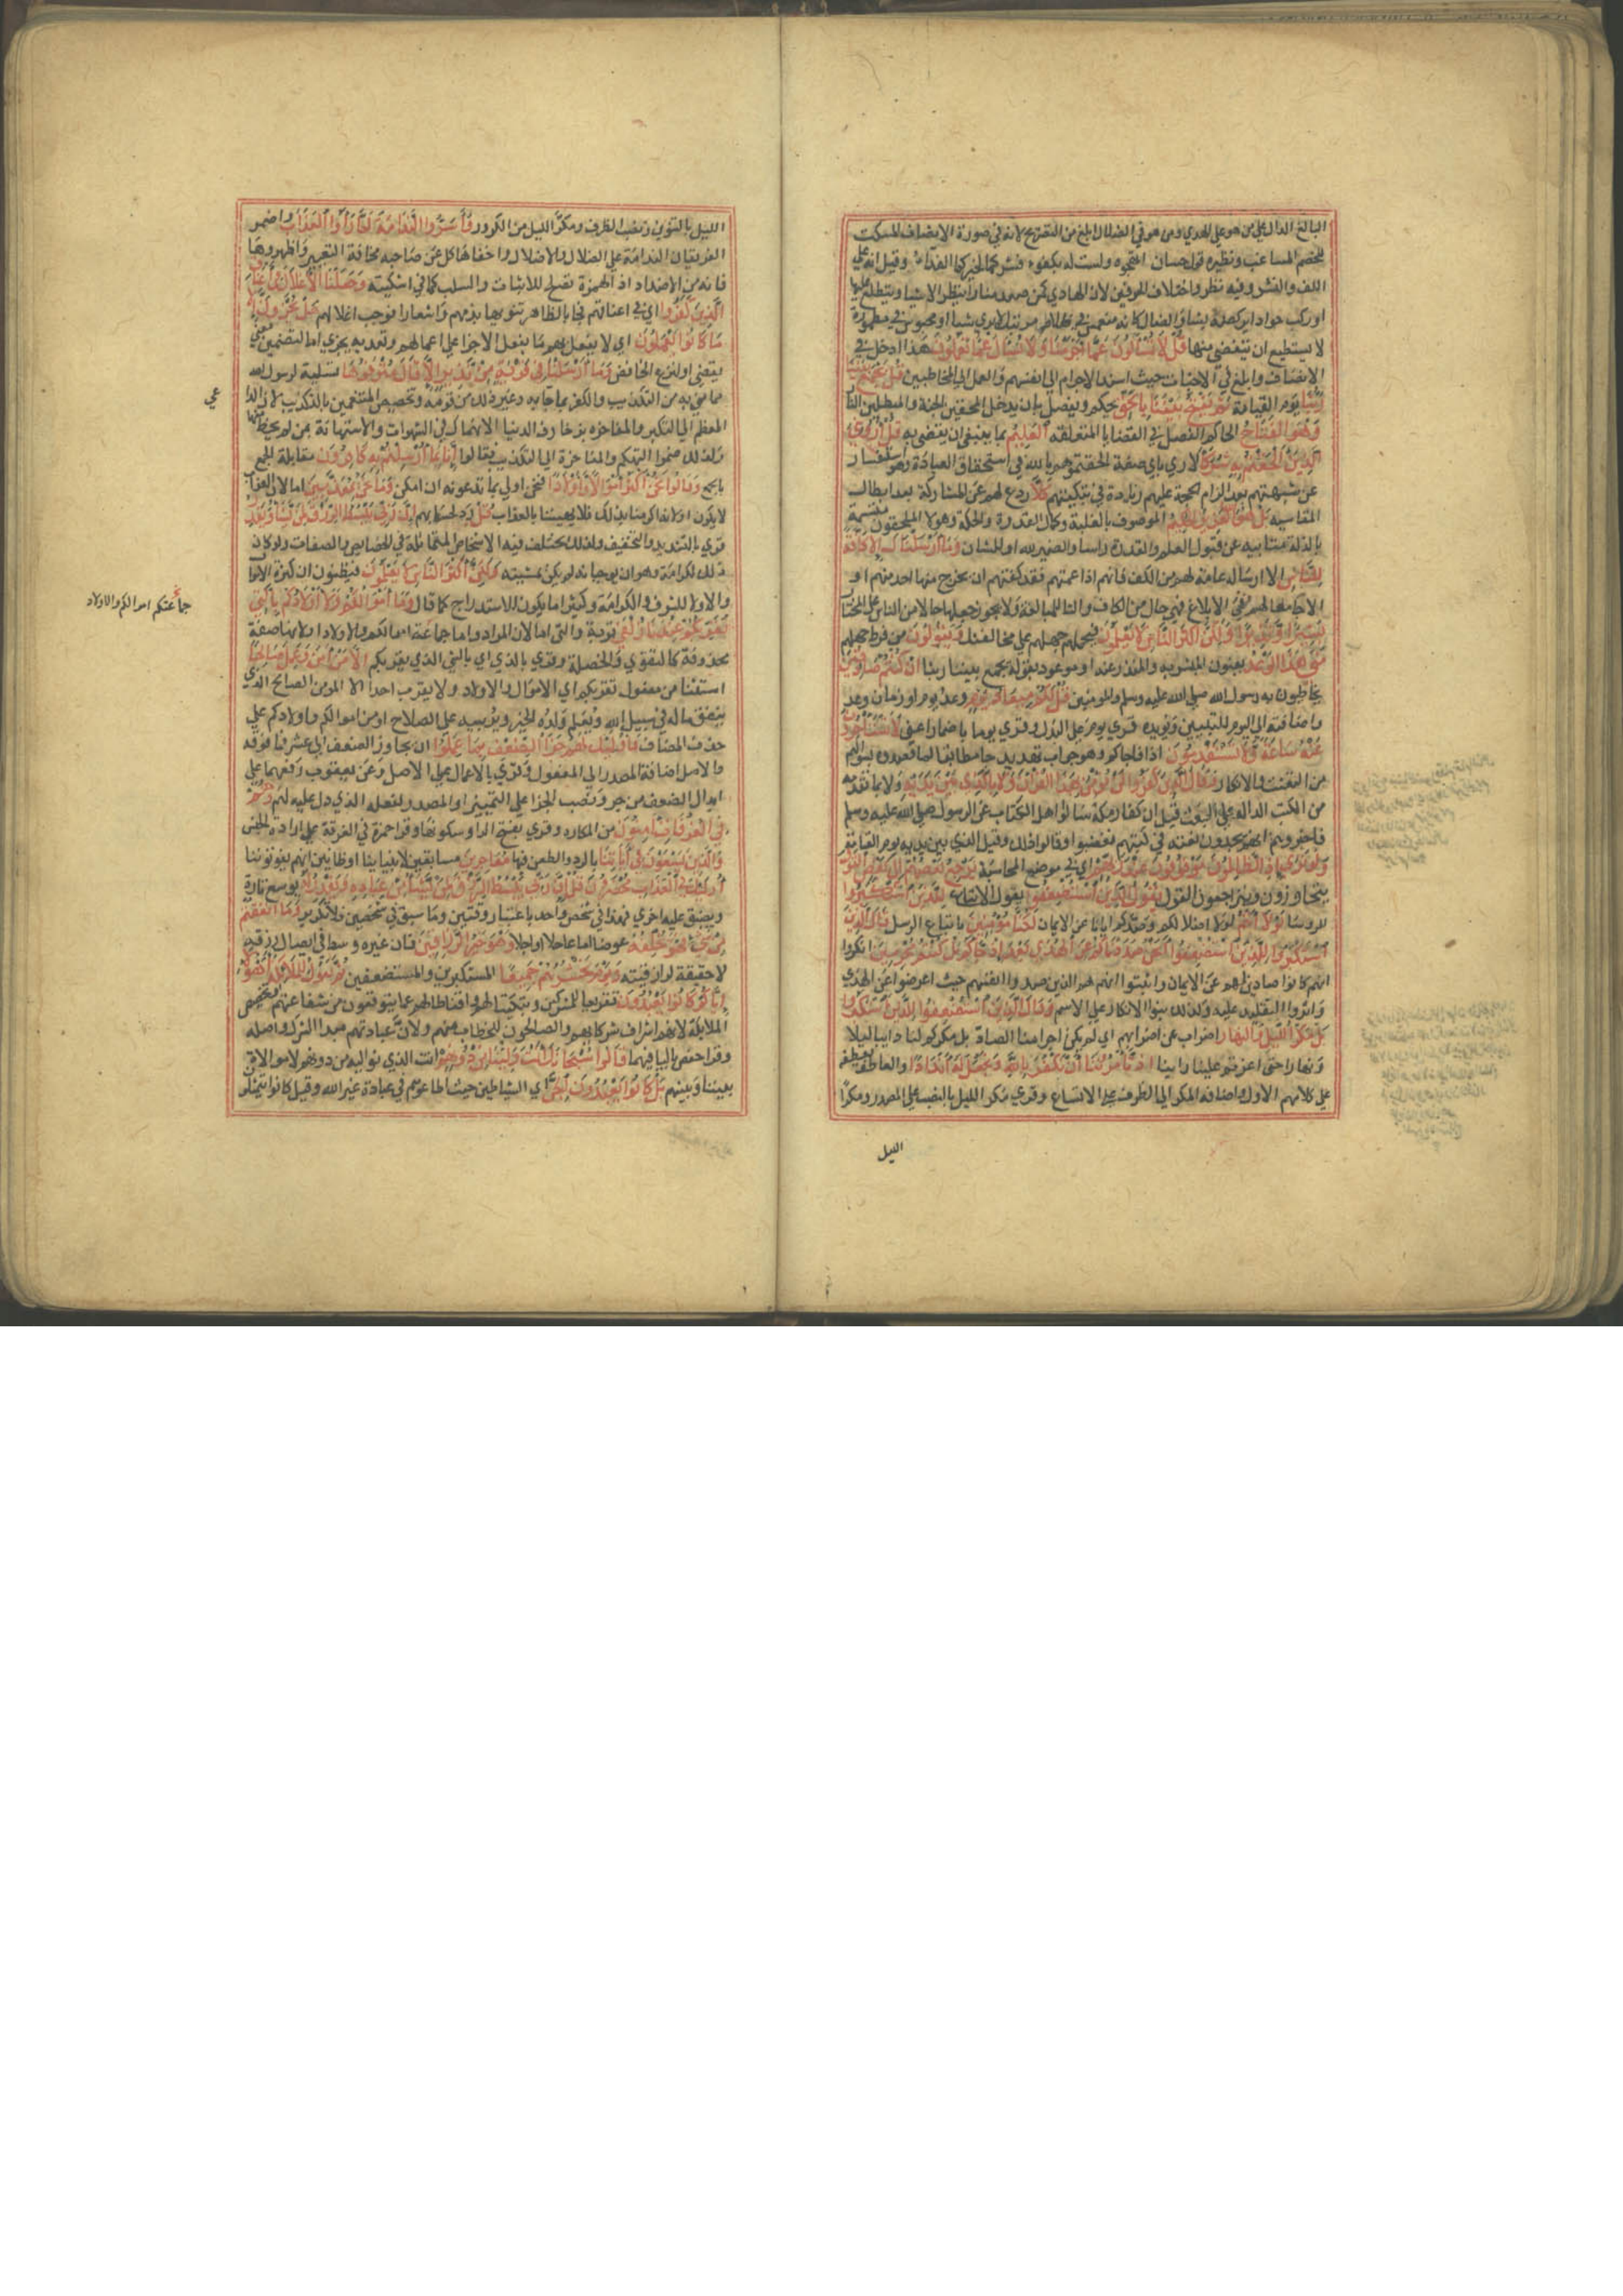 البالغ الدال على من هو على الهدى ومن هو في الضلال ابلغ من التصريح لانه في صورة الانصاف المسكت
للخصم المشاغب ونظيره قول حسان اتهجوه ولست له بكفوء فشركما لخيركما الفداء وقيل انه على
اللف والنشر وفيه نظر واختلاف الحرفين لان الهادي كمن صعد منارا ينظر الاشيا ويتطلع عليها
او ركب جوادا يركضه حيث يشا والضال كانه منغمس في ظلام مرتبك لا يري شيا او محبوس في مطمورة
لا يستطيع ان يتفصى منها قُلْ لَا تُسْئَلُونَ عَمَّا أَجْرَمْنَا وَلَا نُسْئَلُ عَمَّا تَعْمَلُونَ هذا ادخل في
الانصاف وابلغ في الاخبات حيث اسند الاجرام الى انفسهم والعمل الى المخاطبين قُلْ يَجْمَعُ بَيْنَنَا
رَبُّنَا يوم القيامة ثُمَّ يَفْتَحُ بَيْنَنَا بِالْحَقِّ يحكم ويفصل بان يدخل المحقين الجنة والمبطلين النار
وَهُوَ الْفَتَّاحُ الحاكم الفصل في القضايا المنغلقه الْعَلِيمُ بما ينبغي ان يقضى به قُلْ أَرُونِيَ
الَّذِينَ أَلْحَقْتُمْ بِهِ شُرَكَاءَ لاري باي صفة الحقتموهم بالله في استحقاق العبادة وهو استفسار
عن شبهتهم بعد الزام الحجة عليهم زيادة في تبكيتهم كَلَّا ردع لهم عن المشاركة بعد ابطال
المقايسة بَلْ هُوَ اللَّهُ الْعَزِيزُ الْحَكِيمُ الموصوف بالغلبة وكمال القدرة والحكمة وهولا الملحقون متسمة
بالذلة متابيه عن قبول العلم والقدرة راسا والضمير لله او للشان وَمَا أَرْسَلْنَاكَ إِلَّا كَافَّةً
لِلنَّاسِ الا ارسالة عامة لهم من الكف فانهم اذا عمتهم فقد كفتهم ان يخرج منها احد منهم او
الا جامعا لهم في الابلاغ فهي حال من الكاف والتا للمبالغة ولا يجوز جعلها حالا من الناس على المختار
بَشِيرًا وَنَذِيرًا وَلَكِنَّ أَكْثَرَ النَّاسِ لَا يَعْلَمُونَ فيحملهم جهلهم على مخالفتك وَيَقُولُونَ من فرط جهلهم
مَتَى هَذَا الْوَعْدُ يعنون المبشر به والمنذر عنه او موعود بقوله يجمع بيننا ربنا إِنْ كُنْتُمْ صَادِقِينَ
يخاطبون به رسول الله صلى الله عليه وسلم والمومنين قُلْ لَكُمْ مِيعَادُ يَوْمٍ وعد يوم او زمان وعد
واضافته الى اليوم للتبيين ويويده قري يوم على البدل وقري يوما باضمار اعني لَا تَسْتَأْخِرُونَ
عَنْهُ سَاعَةً وَلَا تَسْتَقْدِمُونَ اذا فاجاكم وهو جواب تهديد جا مطابقا لما قصدوه بسوالهم
من التعنت والانكار وَقَالَ الَّذِينَ كَفَرُوا لَنْ نُؤْمِنَ بِهَذَا الْقُرْآنِ وَلَا بِالَّذِي بَيْنَ يَدَيْهِ ولا بما تقدمه
من الكتب الدالة على البعث قيل ان كفار مكة سالوا اهل الكتاب عن الرسول صلى الله عليه وسلم
فاخبروهم انهم يجدون نعته في كتبهم فغضبوا وقالوا ذلك وقيل الذي بين يديه يوم القيامة
وَلَوْ تَرَى إِذِ الظَّالِمُونَ مَوْقُوفُونَ عِنْدَ رَبِّهِمْ اي في موضع المحاسبة يَرْجِعُ بَعْضُهُمْ إِلَى بَعْضٍ الْقَوْلَ
يتحاورون ويتراجعون القول يَقُولُ الَّذِينَ اسْتُضْعِفُوا يقول الاتباع لِلَّذِينَ اسْتَكْبَرُوا
للروسا لَوْلَا أَنْتُمْ لولا اضلالكم وصدكم ايانا عن الايمان لَكُنَّا مُؤْمِنِينَ باتباع الرسل قَالَ الَّذِينَ
اسْتَكْبَرُوا لِلَّذِينَ اسْتُضْعِفُوا أَنَحْنُ صَدَدْنَاكُمْ عَنِ الْهُدَى بَعْدَ إِذْ جَاءَكُمْ بَلْ كُنْتُمْ مُجْرِمِينَ انكروا
انهم كانوا صادين لهم عن الايمان واثبتوا انهم هم الذين صدوا انفسهم حيث اعرضوا عن الهدي
واثروا التقليد عليه ولذلك بنوا الانكار على الاسم وَقَالَ الَّذِينَ اسْتُضْعِفُوا لِلَّذِينَ اسْتَكْبَرُوا
بَلْ مَكْرُ اللَّيْلِ وَالنَّهَارِ اضراب عن اضرابهم اي لم يكن اجرامنا الصاد بل مكركم لنا دايبا ليلا
ونهارا حتى اعزتم علينا راينا إِذْ تَأْمُرُونَنَا أَنْ نَكْفُرَ بِاللَّهِ وَنَجْعَلَ لَهُ أَنْدَادًا والعاطف يعطفه
على كلامهم الاول واضافه المكر الى الظرف على الاتساع وقري مكر الليل بالنصب على المصدر ومكر
الليل
الليل بالتنوين ونصب الظرف ومكر الليل من الكرور وَأَسَرُّوا النَّدَامَةَ لَمَّا رَأَوُا الْعَذَابَ واضمر
الفريقان الندامة على الضلال والاضلال واخفاها كل عن صاحبه مخافة التعيير او اظهروها
فانه من الاضداد اذ الهمزة تصلح للاثبات والسلب كما في اشكيته وَجَعَلْنَا الْأَغْلَالَ فِي أَعْنَاقِ
الَّذِينَ كَفَرُوا اي في اعناقهم فجا بالظاهر تنويها بذمهم واشعارا بموجب اغلالهم هَلْ يُجْزَوْنَ إِلَّا
مَا كَانُوا يَعْمَلُونَ اي لا يفعل بهم ما يفعل الا جزا على اعمالهم وتعديه يجزي اما لتضمين معنى
يقضي او لنزع الخافض وَمَا أَرْسَلْنَا فِي قَرْيَةٍ مِنْ نَذِيرٍ إِلَّا قَالَ مُتْرَفُوهَا تسلية لرسول الله
مما مني به من التكذيب والكفر بما جا به وغير ذلك من قومه وتخصيص المتنعمين بالتكذيب لان الداعي
المعظم الى التكبر والمفاخره بزخارف الدنيا الانهماك في الشهوات والاستهانة بمن لم يحظ منها
ولذلك ضموا التهكم والمفاخرة الى التكذيب فقالوا إِنَّا بِمَا أُرْسِلْتُمْ بِهِ كَافِرُونَ مقابلة الجمع
بالجمع وَقَالُوا نَحْنُ أَكْثَرُ أَمْوَالًا وَأَوْلَادًا فنحن اولى بما تدعونه ان امكن وَمَا نَحْنُ بِمُعَذَّبِينَ اما لان العذاب
لا يكون او لانه اكرمنا بذلك فلا يهيننا بالعذاب قُلْ رد لحسبانهم إِنَّ رَبِّي يَبْسُطُ الرِّزْقَ لِمَنْ يَشَاءُ وَيَقْدِرُ
قري بالتشديد والتخفيف ولذلك يختلف فيه الاشخاص المتماثلة في الخصايص والصفات ولو كان
ذلك لكرامة وهوان يوجبانه لم يكن بمشيته وَلَكِنَّ أَكْثَرَ النَّاسِ لَا يَعْلَمُونَ فيظنون ان كثرة الاموال
والاولاد للشرف والكرامة وكثيرا ما يكون للاستدراج كما قال وَمَا أَمْوَالُكُمْ وَلَا أَوْلَادُكُمْ بِالَّتِي
تُقَرِّبُكُمْ عِنْدَنَا زُلْفَى قربة والتي اما لان المراد واما جماعة اموالكم والاولاد او لانها صفة
محذوفة كالتقوي والخصلة وقري بالذي اي بالشي الذي يقربكم إِلَّا مَنْ آمَنَ وَعَمِلَ صَالِحًا
استثنا من مفعول تقربكم اي الاموال والاولاد لا تقرب احدا الا المومن الصالح الذي
ينفق ماله في سبيل الله ويعلم ولده الخير ويربيه على الصلاح او من اموالكم واولادكم على
حذف المضاف فَأُولَئِكَ لَهُمْ جَزَاءُ الضِّعْفِ بِمَا عَمِلُوا ان يجاوز الضعف الى عشر فما فوقه
والاصل اضافة المصدر الى المفعول وقري بالاعمال على الاصل وعن يعقوب رفعهما على
ابدال الضعف من جزا ونصب الجزا على التمييز او المصدر لفعله الذي دل عليه لهم وَهُمْ
فِي الْغُرُفَاتِ آمِنُونَ من المكاره وقري بفتح الرا وسكونها وقرا حمزة في الغرفة على ارادة الجنس
وَالَّذِينَ يَسْعَوْنَ فِي آيَاتِنَا بالرد والطعن فيها مُعَاجِزِينَ مسابقين لانبيائنا او ظانين انهم يفوتوننا
أُولَئِكَ فِي الْعَذَابِ مُحْضَرُونَ قُلْ إِنَّ رَبِّي يَبْسُطُ الرِّزْقَ لِمَنْ يَشَاءُ مِنْ عِبَادِهِ وَيَقْدِرُ لَهُ يوسع تارة
ويضيق عليه اخري فهذا في شخص واحد باعتبار وقتين وما سبق في شخصين فلا تكرير وَمَا أَنْفَقْتُمْ
مِنْ شَيْءٍ فَهُوَ يُخْلِفُهُ عوضا اما عاجلا او اجلا وَهُوَ خَيْرُ الرَّازِقِينَ فان غيره وسط في ايصال رزقه
لا حقيقة لرازقيته وَيَوْمَ نَحْشُرُهُمْ جَمِيعًا المستكبرين والمستضعفين ثُمَّ نَقُولُ لِلْمَلَائِكَةِ أَهَؤُلَاءِ
إِيَّاكُمْ كَانُوا يَعْبُدُونَ تقريعا للمشركين وتبكيتا لهم واقناطا لهم عما يتوقعون من شفاعتهم وتخصيص
الملايكة لانهم اشراف شركايهم والصالحون للخطاب منهم ولان عبادتهم مبدا الشرك واصله
وقرا حفص باليا فيهما قَالُوا سُبْحَانَكَ أَنْتَ وَلِيُّنَا مِنْ دُونِهِمْ انت الذي نواليه من دونهم لا موالاة
بيننا وبينهم بَلْ كَانُوا يَعْبُدُونَ الْجِنَّ اي الشياطين حيث اطاعوهم في عبادة غير الله وقيل كانوا يتمثلون
جماعتكم اموالكم والاولاد